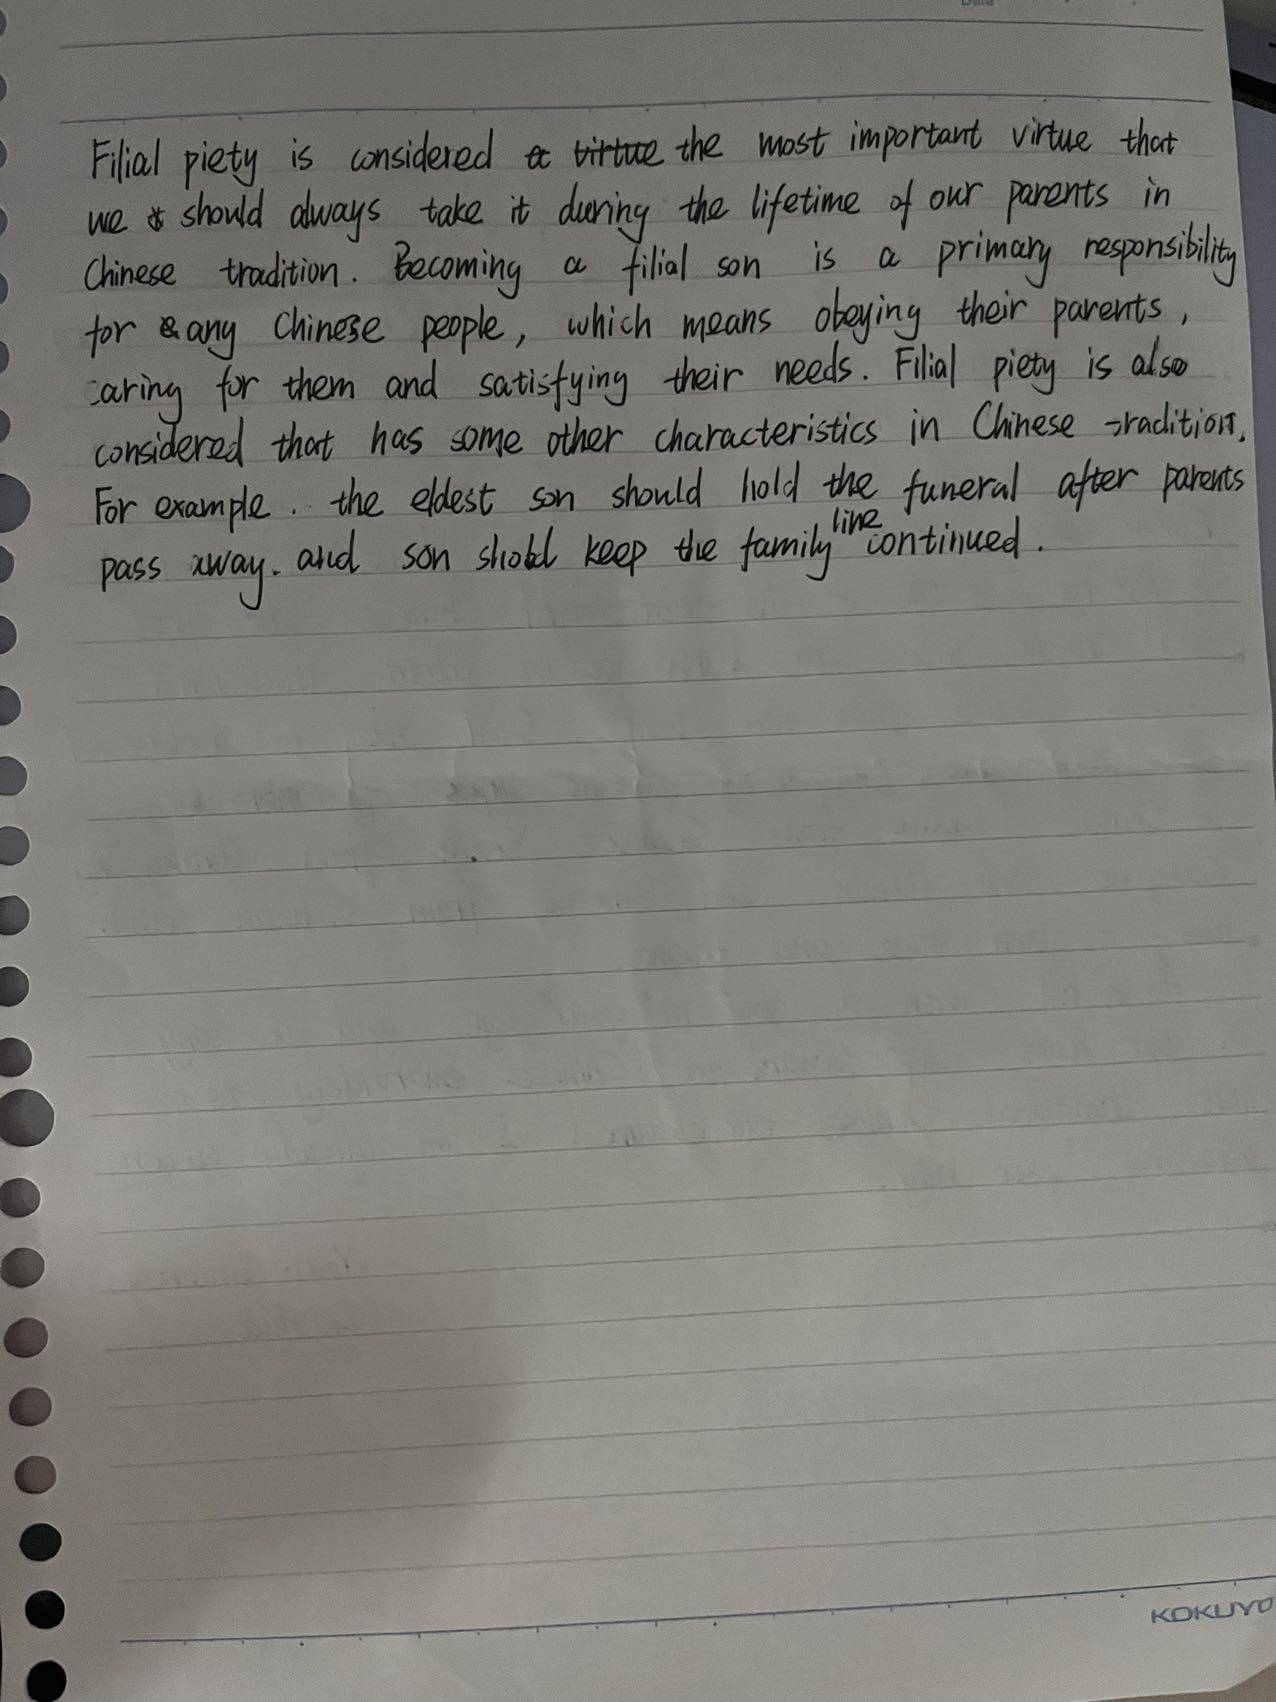 Filial piety is considered a virtue the most important virtue that
we should always take it during the lifetime of our parents in
Chinese tradition. Becoming a filial son is a primary responsibility
for any Chinese people, which means obeying their parents,
caring for them and satisfying their needs. Filial piety is also
considered that has some other characteristics in Chinese tradition.
For example. the eldest son should hold the funeral after parents
pass away. and son shold keep the family line continued.
KOKUYO